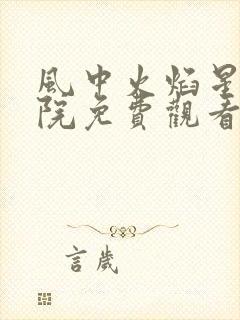 風中火焰星
院免費觀看
言歲